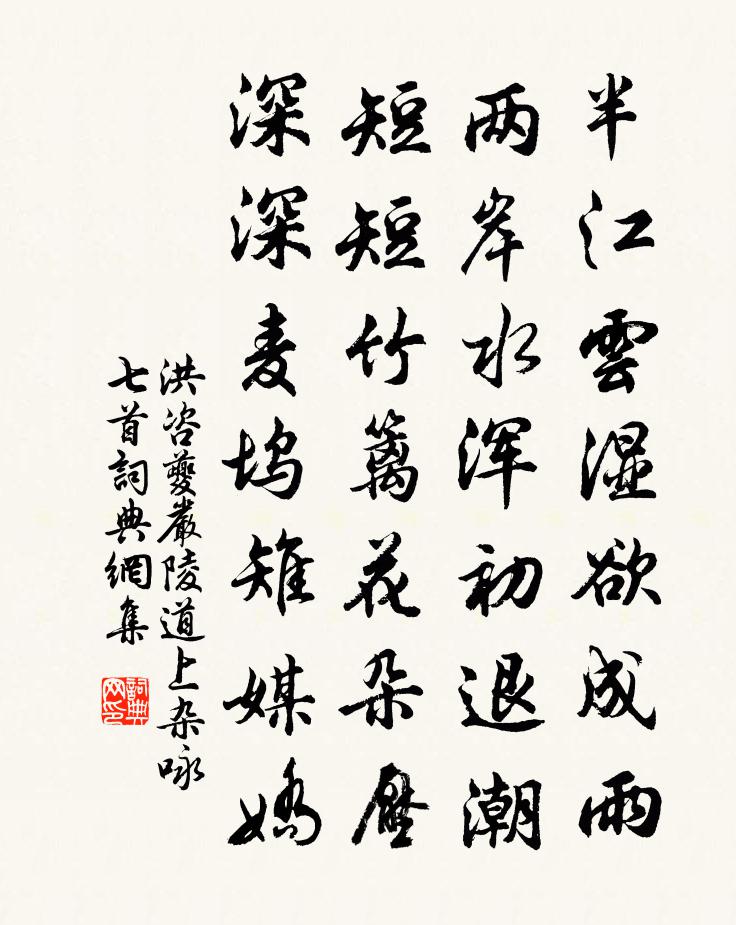 半江雲濕欲成雨
两岸水浑初退潮
短短竹篱花朵壓
深深麦坞雉媒嬌
洪咨夔嚴陵道上杂咏
七首詞典網集
詞典
网印